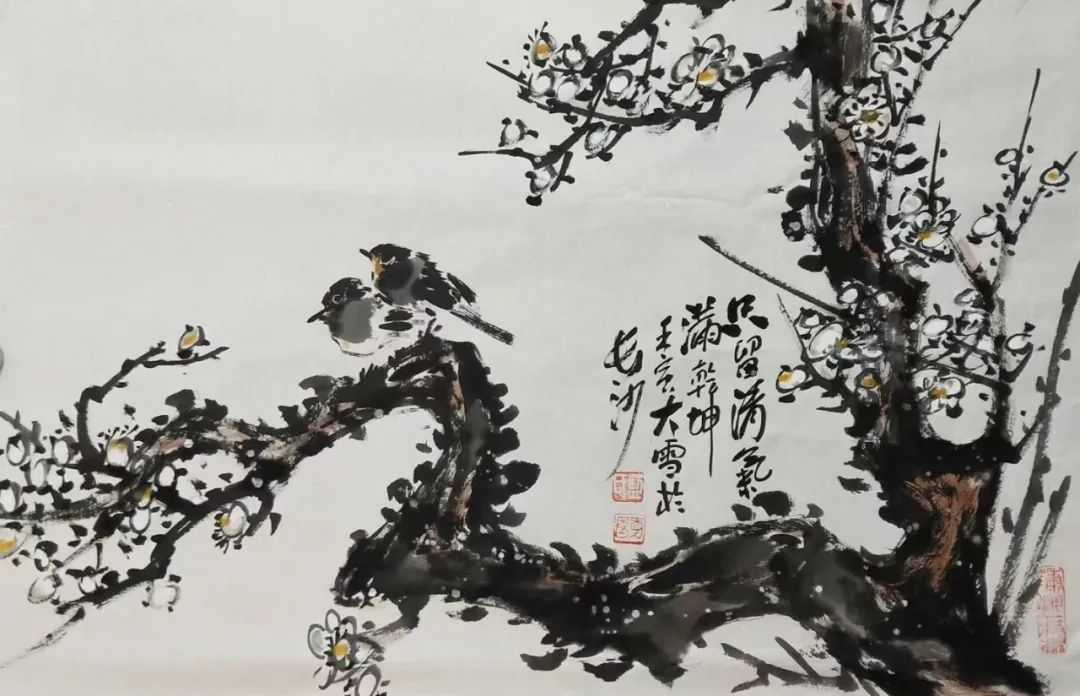 只留清氣
滿乾坤
壬寅大雪於
長沙